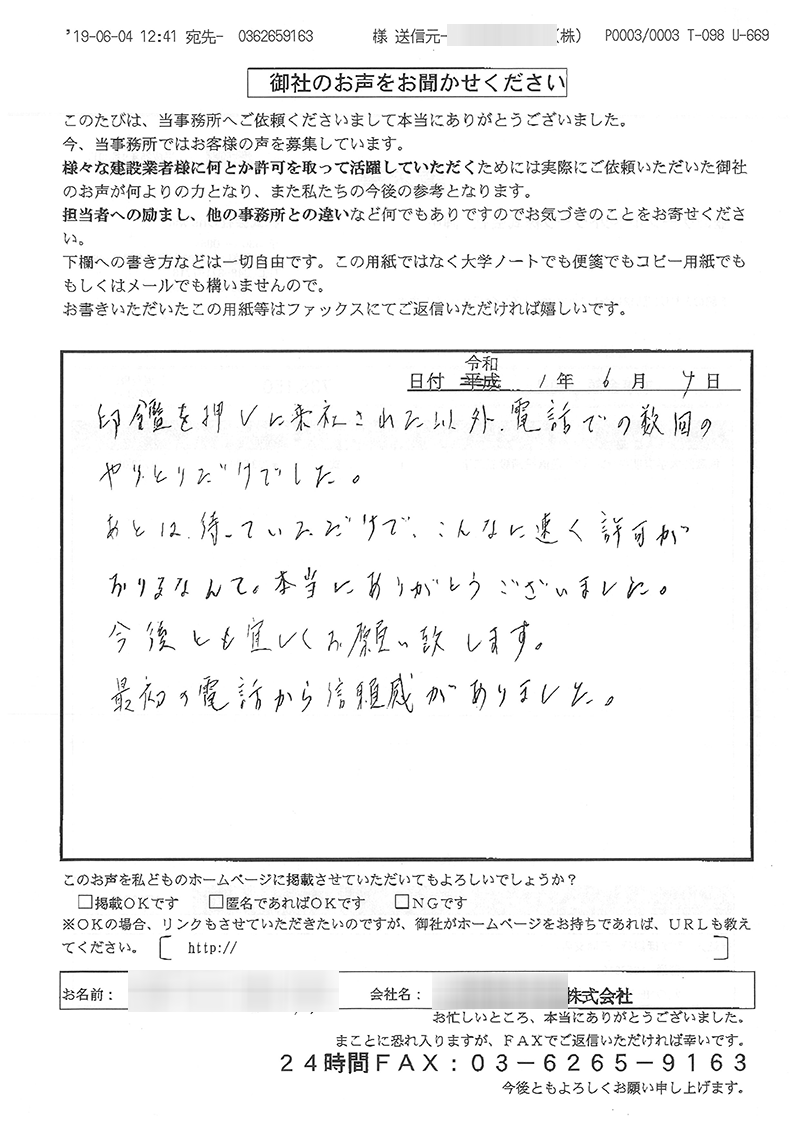 '19-06-04 12:41 宛先- 0362659163 様 送信元- (株) P0003/0003 T-098 U-669
御社のお声をお聞かせください
このたびは、当事務所へご依頼くださいまして本当にありがとうございました。
今、当事務所ではお客様の声を募集しています。
様々な建設業者様に何とか許可を取って活躍していただくためには実際にご依頼いただいた御社
のお声が何よりの力となり、また私たちの今後の参考となります。
担当者への励まし、他の事務所との違いなど何でもありですのでお気づきのことをお寄せくださ
い。
下欄への書き方などは一切自由です。この用紙ではなく大学ノートでも便箋でもコピー用紙でも
もしくはメールでも構いませんので。
お書きいただいたこの用紙等はファックスにてご返信いただければ嬉しいです。
令和
日付 平成 1年 6月 4日
印鑑を押しに来社された以外、電話での数回の
やりとりだけでした。
あとは、待っていただけで、こんなに速く許可が
おりるなんて。本当にありがとうございました。
今後とも宜しくお願い致します。
最初の電話から信頼感がありました。
このお声を私どものホームページに掲載させていただいてもよろしいでしょうか？
□掲載OKです □匿名であればOKです □NGです
※OKの場合、リンクもさせていただきたいのですが、御社がホームページをお持ちであれば、URLも教え
てください。 〔 http:// 〕
お名前： 会社名： 株式会社
お忙しいところ、本当にありがとうございました。
まことに恐れ入りますが、FAXでご返信いただければ幸いです。
24時間FAX：03－6265－9163
今後ともよろしくお願い申し上げます。